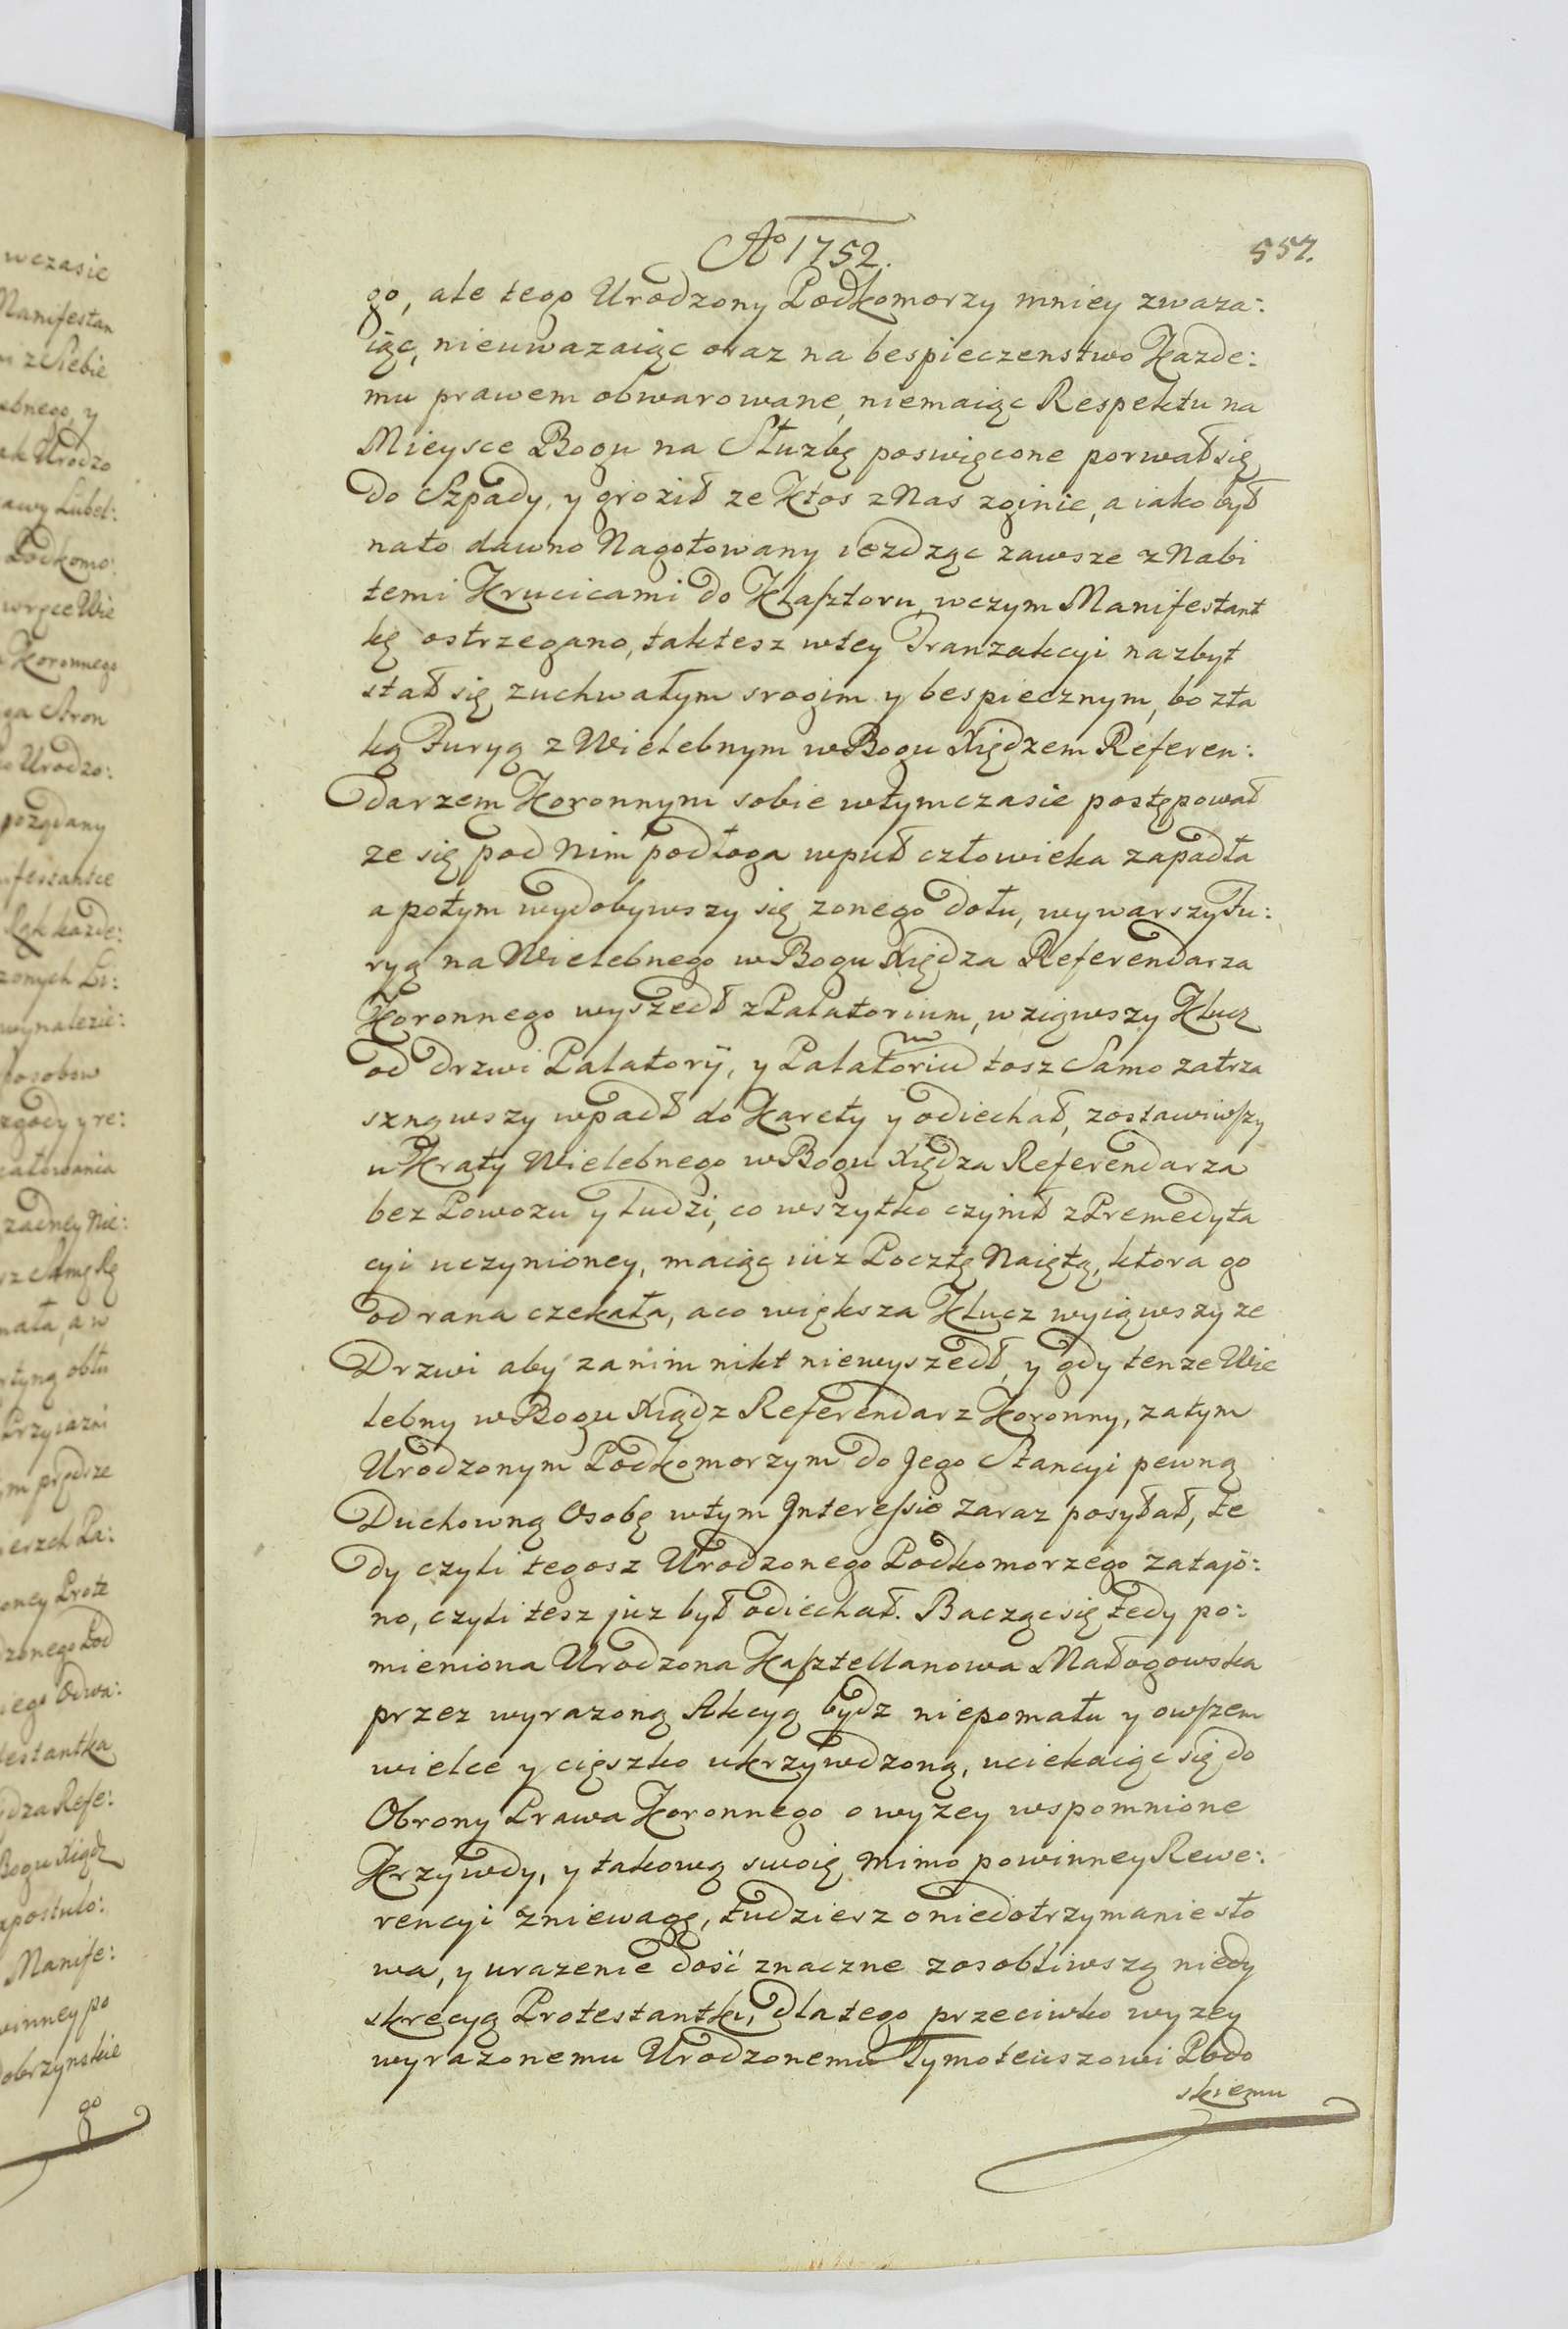 Aº 1752.
557.
go, ale tego Urodzony Podkomorzy mniey zwaza:
iąc, nieuwazaiąc oraz na bespieczenstwo Kazde:
mu prawem obwarowane, niemaiąc Respektu na
Mieysce Bogu na Służbę poswięcone porwał się
do Szpady, y groził ze Ktos z Nas zginie, a iako był
nato dawno Nagotowany iezdząc zawsze z Nabi
temi Krucicami do Klasztoru, wczym Manifestant
kę ostrzegano, taktesz wtey Tranzakcyi nazbyt
stał się zuchwałym srogim y bespiecznym, bo zta
ką Furyą z Wielebnym w Bogu Xiędzem Referen:
darzem Koronnym sobie wtymczasie postępował
ze się pod Nim podłoga wpuł człowieka zapadła
a potym wydobywszy się zonego dołu, wywarszy Fu:
ryą na Wielebnego w Bogu Xiędza Referendarza
Koronnego wyszedł z Palatorium, wziąwszy Klucz
od drzwi Palatorÿ, y Palatorium tosz Samo zatrza
sznąwszy wpadł do Karety y odiechał, zostawiwszy
u Kraty Wielebnego w Bogu Xiędza Referendarza
bez Powozu y ludzi, co wszytko czynił z Premedyta
cyi uczynioney, maiąc iuz Pocztę Naiętą, ktora go
od rana czekała, aco większa Klucz wyiąwszy ze
Drzwi aby zanim nikt niewyszedł, y gdy tenze Wie
lebny w Bogu Xiądz Referendarz Koronny, zatym
Urodzonym Podkomorzym do Jego Stancyi pewną
Duchowną Osobę wtym Interessie zaraz posyłał, te
dy czyli tegosz Urodzonego Podkomorzego zatajo:
no, czyli tesz juz był odiechał. Bacząc się tedy po:
mieniona Urodzona Kasztellanowa Małogowska
przez wyrazoną Akcyą bydz niepomału y owszem
wielce y cięszko ukrzywdzoną, uciekaiąc się do
Obrony Prawa Koronnego o wyzey wspomnione
Krzywdy, y takową swoię mimo powinney Rewe:
rencyi zniewagę, tudziesz o niedotrzymanie sło
wa, y urazenie dość znaczne zosobliwszą niedy
skrecyą Protestantki, dlatego przeciwko wyzey
wyrazonemu Urodzonemu Tymoteuszowi Podo
skiemu